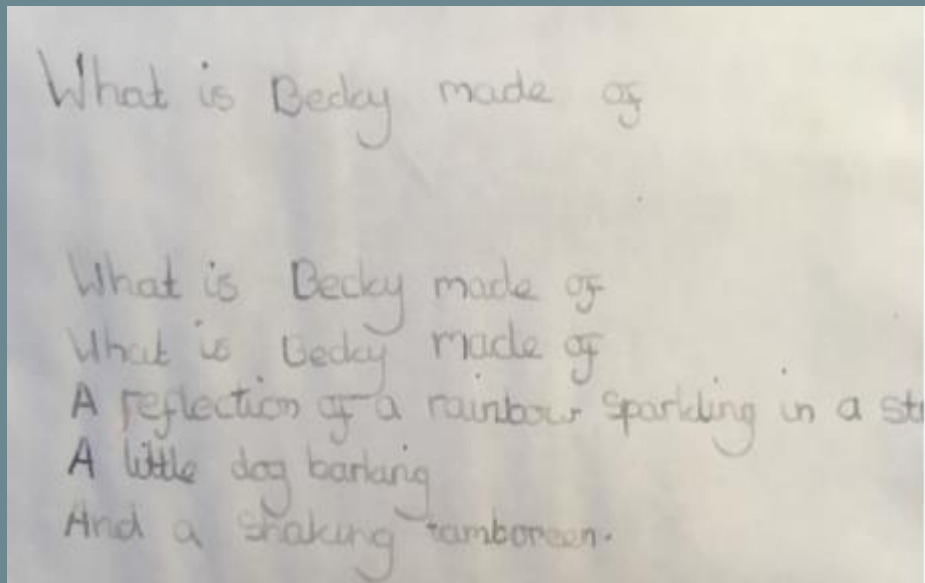 What is Becky made of
What is Becky made of
What is Becky made of
A reflection of a rainbow sparkling in a
A little dog barking
And a shaking tamboreen.